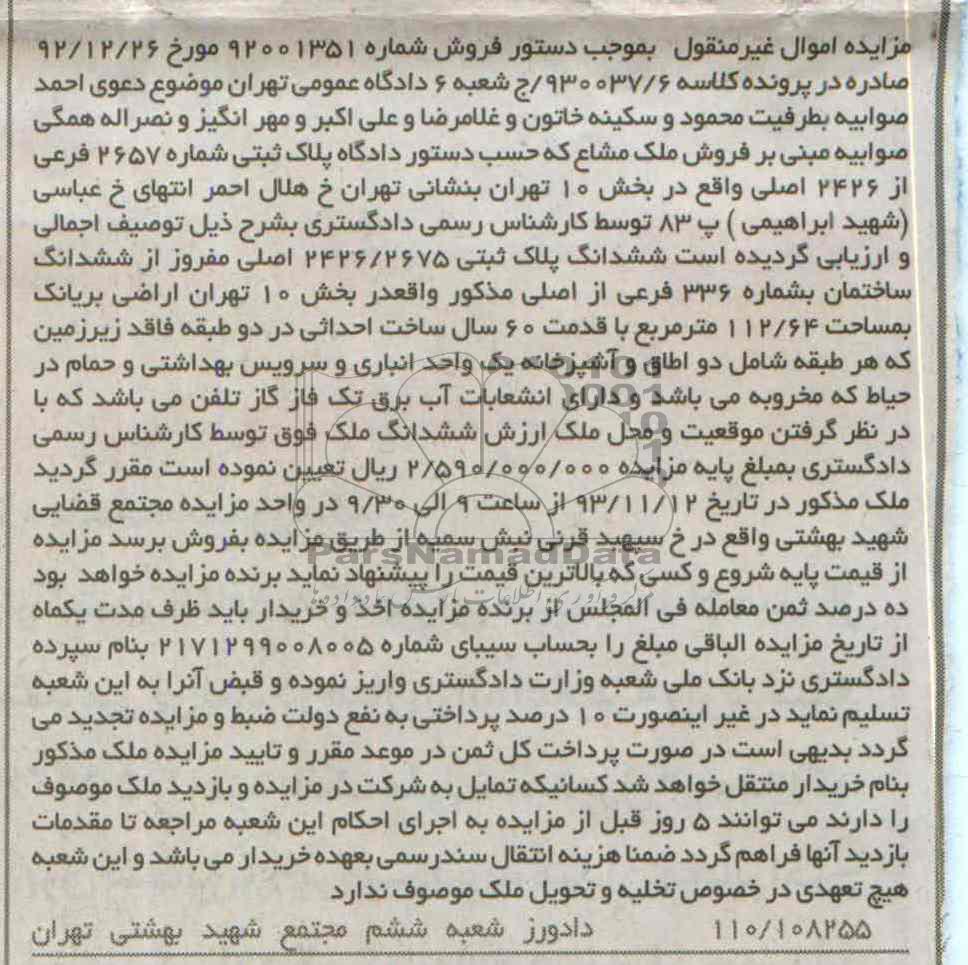 مزایده اموال غیرمنقول بموجب دستور فروش شماره ۹۲۰۰۱۳۵۱ مورخ ۹۲/۱۲/۲۶
صادره در پرونده کلاسه ۹۳۰۰۳۷/۶/ج شعبه ۶ دادگاه عمومی تهران موضوع دعوی احمد
صوابیه بطرفیت محمود و سکینه خاتون و غلامرضا و علی اکبر و مهر انگیز و نصراله همگی
صوابیه مبنی بر فروش ملک مشاع که حسب دستور دادگاه پلاک ثبتی شماره ۲۶۵۷ فرعی
از ۲۴۲۶ اصلی واقع در بخش ۱۰ تهران بنشانی تهران خ هلال احمر انتهای خ عباسی
(شهید ابراهیمی ) پ ۸۳ توسط کارشناس رسمی دادگستری بشرح ذیل توصیف اجمالی
و ارزیابی گردیده است ششدانگ پلاک ثبتی ۲۴۲۶/۲۶۷۵ اصلی مفروز از ششدانگ
ساختمان بشماره ۳۳۶ فرعی از اصلی مذکور واقعدر بخش ۱۰ تهران اراضی بریانک
بمساحت ۱۱۲/۶۴ مترمربع با قدمت ۶۰ سال ساخت احداثی در دو طبقه فاقد زیرزمین
که هر طبقه شامل دو اطاق و آشپزخانه یک واحد انباری و سرویس بهداشتی و حمام در
حیاط که مخروبه می باشد و دارای انشعابات آب برق تک فاز گاز تلفن می باشد که با
در نظر گرفتن موقعیت و محل ملک ارزش ششدانگ ملک فوق توسط کارشناس رسمی
دادگستری بمبلغ پایه مزایده ۲/۵۹۰/۰۰۰/۰۰۰ ریال تعیین نموده است مقرر گردید
ملک مذکور در تاریخ ۹۳/۱۱/۱۲ از ساعت ۹ الی ۹/۳۰ در واحد مزایده مجتمع قضایی
شهید بهشتی واقع در خ سپهبد قرنی نبش سمیه از طریق مزایده بفروش برسد مزایده
از قیمت پایه شروع و کسی که بالاترین قیمت را پیشنهاد نماید برنده مزایده خواهد بود
ده درصد ثمن معامله فی المجلس از برنده مزایده اخذ و خریدار باید ظرف مدت یکماه
از تاریخ مزایده الباقی مبلغ را بحساب سیبای شماره ۲۱۷۱۲۹۹۰۰۸۰۰۵ بنام سپرده
دادگستری نزد بانک ملی شعبه وزارت دادگستری واریز نموده و قبض آنرا به این شعبه
تسلیم نماید در غیر اینصورت ۱۰ درصد پرداختی به نفع دولت ضبط و مزایده تجدید می
گردد بدیهی است در صورت پرداخت کل ثمن در موعد مقرر و تایید مزایده ملک مذکور
بنام خریدار منتقل خواهد شد کسانیکه تمایل به شرکت در مزایده و بازدید ملک موصوف
را دارند می توانند ۵ روز قبل از مزایده به اجرای احکام این شعبه مراجعه تا مقدمات
بازدید آنها فراهم گردد ضمنا هزینه انتقال سندرسمی بعهده خریدار می باشد و این شعبه
هیچ تعهدی در خصوص تخلیه و تحویل ملک موصوف ندارد
۱۱۰/۱۰۸۲۵۵ دادورز شعبه ششم مجتمع شهید بهشتی تهران
ParsNamadData